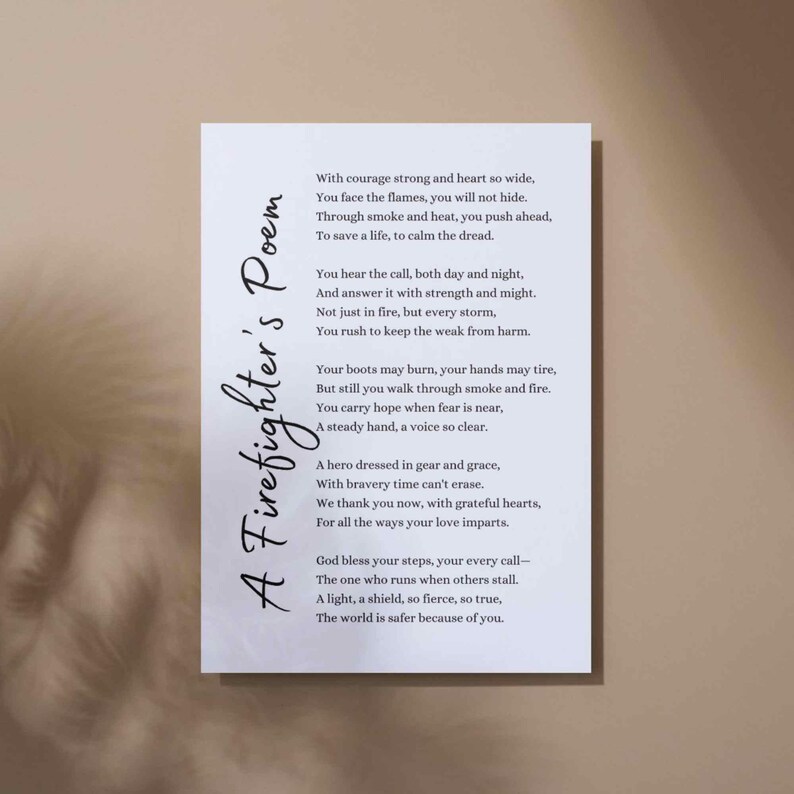 A Firefighter's Poem
With courage strong and heart so wide,
You face the flames, you will not hide.
Through smoke and heat, you push ahead,
To save a life, to calm the dread.
You hear the call, both day and night,
And answer it with strength and might.
Not just in fire, but every storm,
You rush to keep the weak from harm.
Your boots may burn, your hands may tire,
But still you walk through smoke and fire.
You carry hope when fear is near,
A steady hand, a voice so clear.
A hero dressed in gear and grace,
With bravery time can't erase.
We thank you now, with grateful hearts,
For all the ways your love imparts.
God bless your steps, your every call—
The one who runs when others stall.
A light, a shield, so fierce, so true,
The world is safer because of you.